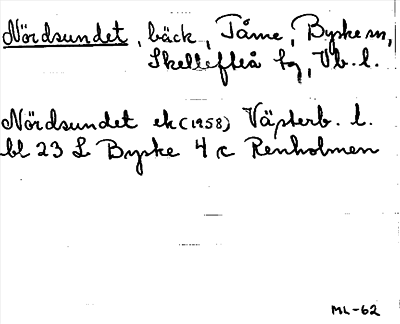 Nördsundet, bäck, Tåme, Byske sn,
Skellefteå tg, Vb. l.
Nördsundet ek (1958) Västerb. l.
bl 23 L Byske 4 c Renholmen
ML-62